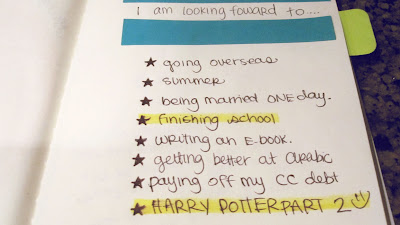 I am looking foward to....
★ going overseas
★ summer
★ being married ONE day.
★ finishing school
★ writing an E-book.
★ getting better at arabic
★ paying off my CC debt
★ HARRY POTTER PART 2